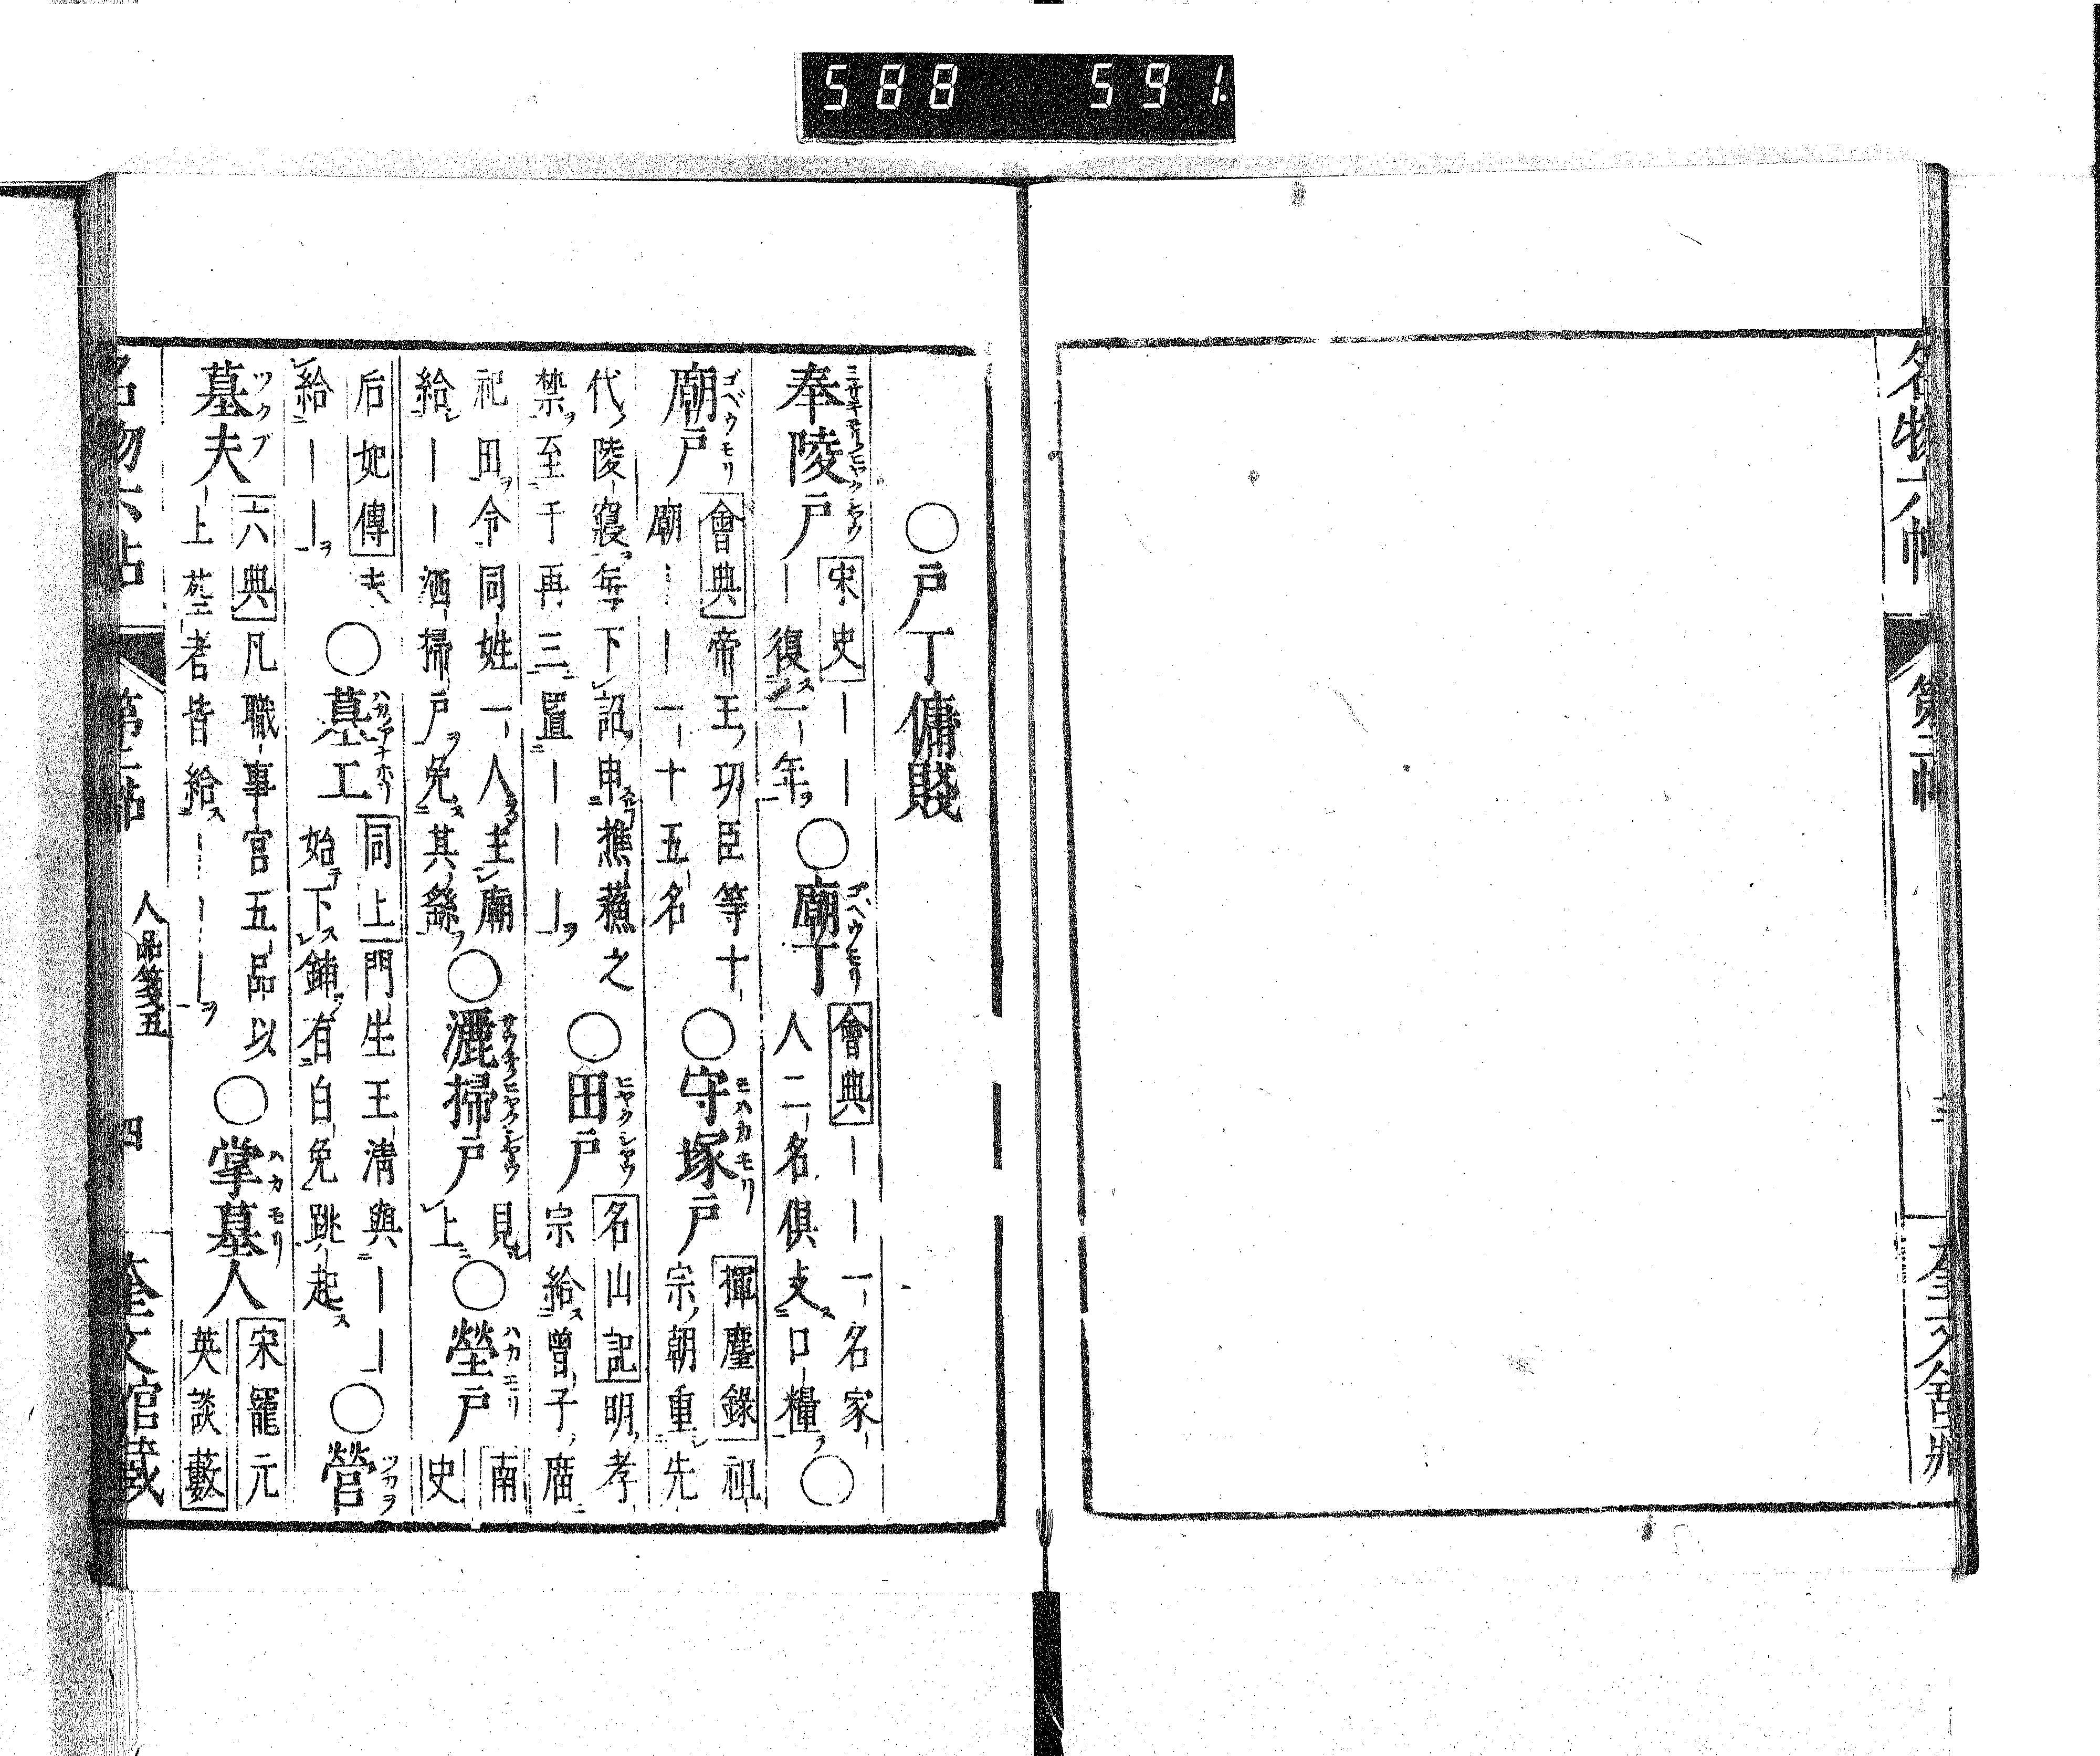 588 591
名物六帖 第二帖 奎文舘藏
〇戸丁傭賤
奉陵戸 宋史｜｜
｜復一年 〇廟丁 會典｜｜一名家
人二名俱支口糧 〇
廟戸 會典帝王功臣等十
廟｜｜一十五名 〇守塚戸 揮麈錄祖
宗朝重先
代陵寢每下詔申樵蘓之
禁至于再三置｜｜｜ 〇田戸 名山記明孝
宗給曾子廣
祀田令同姓一人主廟
給｜｜洒掃戸免其繇 〇灑掃戸 見
上 〇塋戸 南
史
后妃傳
給｜｜｜ 〇墓工 同上門生王清與｜｜
始下鋪有白免跳起 〇營
墓夫 六典凡職事官五品以
上塟者皆給｜｜｜ 〇掌墓人 宋龐元
英談藪
名物六帖 第二帖 人品箋五 四 奎文舘藏